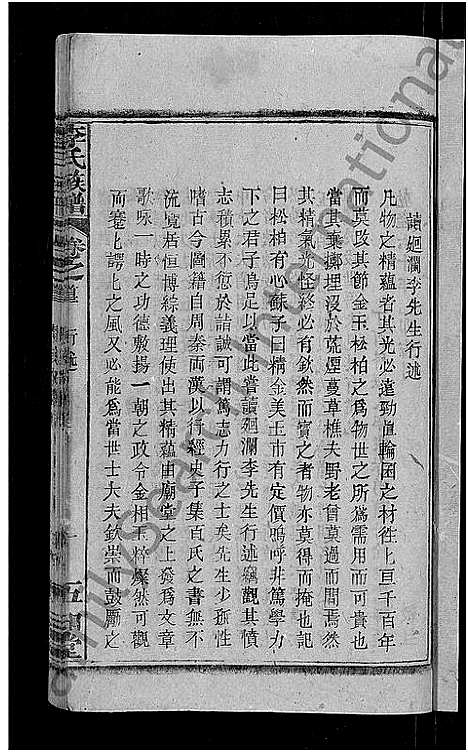 讀廻瀾李先生行述
凡物之精蘊者其光必遠勁直輪囷之材徃上亘千百年
而莫改其節金玉松柏之爲物世之所爲需用而可貴也
當其棄擲埋沒於荒煙蔓草樵夫野老曾莫過而問焉然
其精氣光怪終必有欽然而寳之者物亦莫得而掩也記
曰松柏有心蘇子曰精金美玉市有定價嗚呼非篤學力
下之君子烏足以當此嘗讀廻瀾李先生行述竊觀其憤
志積累不愆於詰誡可謂篤志力行之士矣先生少孤性
嗜古今圖籍自周秦兩漢以行經史子集百氏之書無不
流覽居恒博綜義理使出其精蘊由廟堂之上發爲文章
歌咏一時之功德敷揚一朝之政令金相玉 燦然可觀
而蹇上諤上之風又必能爲當世士大夫欽崇而鼓勵之
李氏族譜
卷之首
行述
一
FamilySearch International